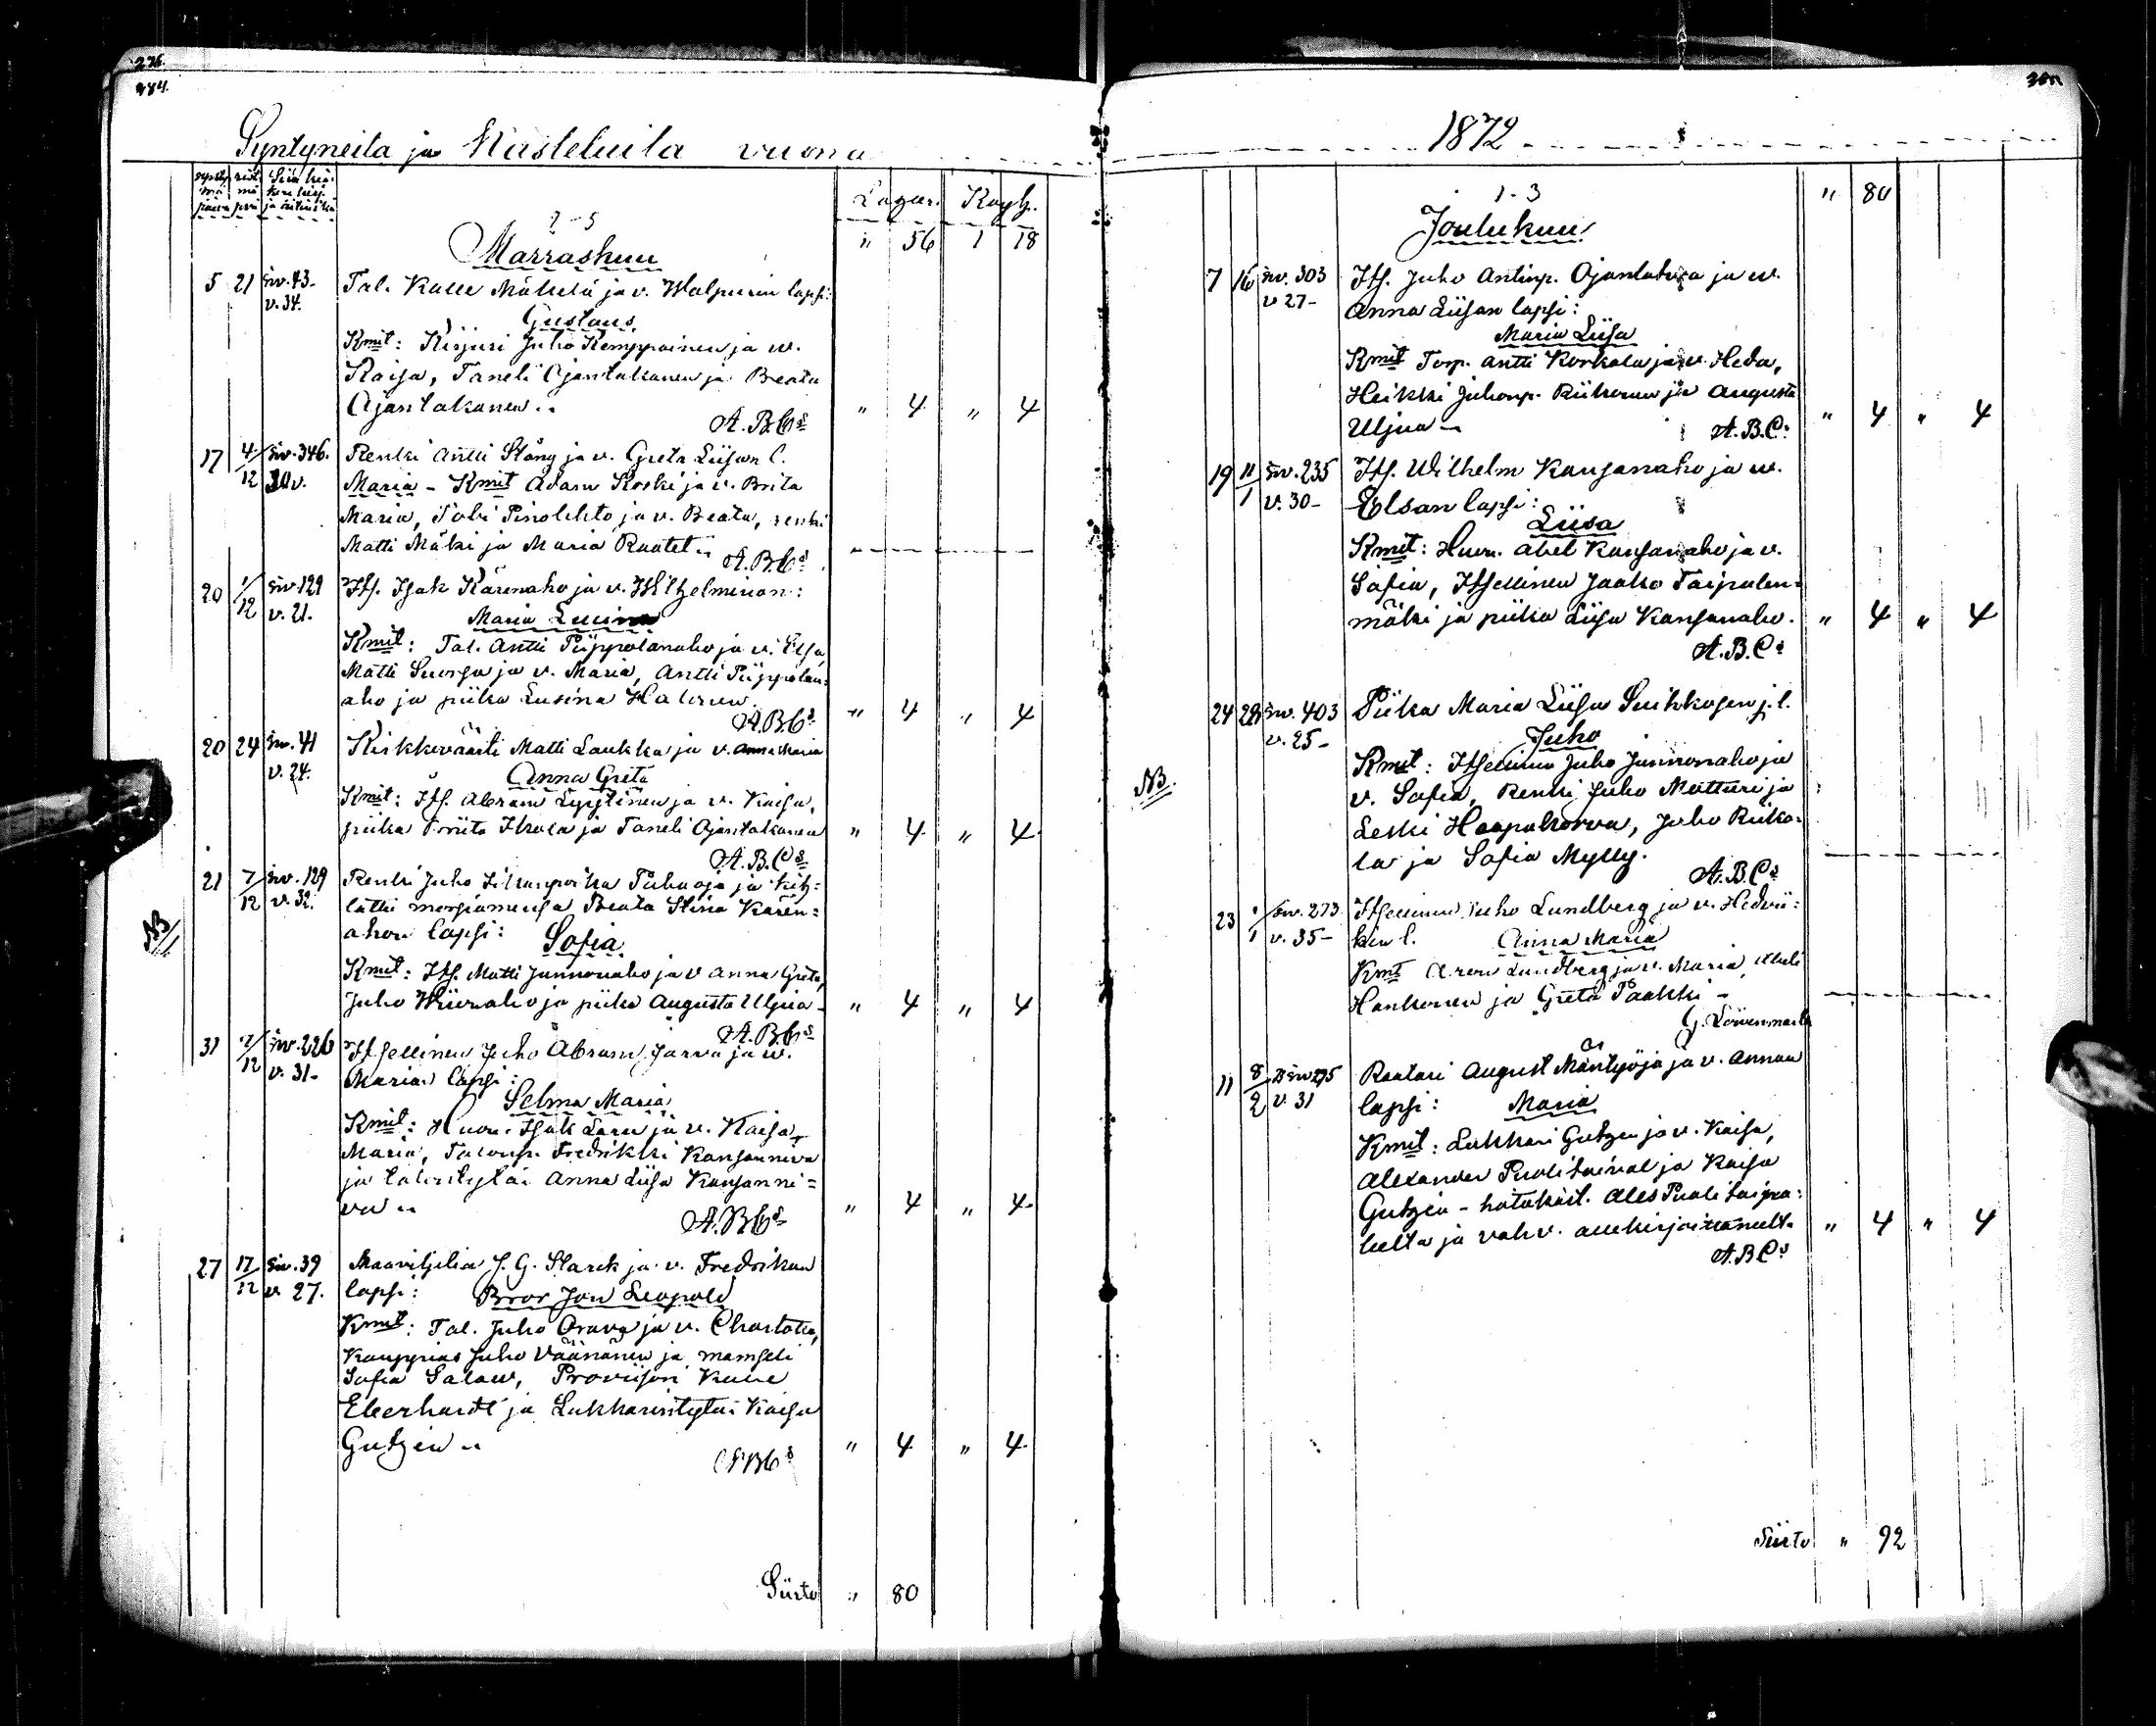 284.
Syntyneitä ja Kasteluita vuona
synty mä päivä
rist. mä pvä
Sivu
Marraskuu
Lazar. Köyh.
" 56 1 18
5 21 siv. 43- Tal. Kalle Mäkelä ja v. Walpurin lapsi:
v. 34. Gustaus
Kmit: Kirjuri Juho Kemppainen ja w.
Kaisa, Taneli Ajantakanen ja Beata
Ajantakanen " 4 " 4
A.B.Cs
17 4/12 siv. 346. Renki Antti Stång ja v. Greta Liisan l.
30 v. Maria - Kmit Adam Koski ja v. Brita
Maria, Tobi Pinolehto ja v. Beata, renki
Matti Mäki ja Maria Raatet
A.B.Cs
20 1/12 siv 129 Its. Isak Kärenaho ja v. Wilhelminan:
v. 21. Maria Lusina
Kmit: Tal. Antti Piippolanaho ja v. Elsa,
Matti Suorsa ja v. Maria, Antti Piippolan=
aho ja piika Lusina " 4 " 4
A.B.Cs
20 24 siv. 41 Kirkkoväärti Matti Laukka ja v. Anna Maria
v. 24. Anna Greta
Kmit: Its. Abram Lyytinen ja v. Kaisa,
piika ja Taneli Ajantakanen " 4 " 4
A.B.Cs
NB
21 7/12 siv. 129 Renki Juho ja kih=
v. 32. lattu morsiamensa Beata Stina Kären=
ahon lapsi: Sofia
Kmit: Its. Matti Junnonaho ja v Anna Greta,
Juho ja piika Augusta Uljua " 4 " 4
A.B.Cs
31 /12 siv. 226 Itsellinen Juho Abram Järvi ja w.
v. 31- Marian lapsi:
Selma Maria
Kmit: Huon. Isak ja v. Kaisa
Maria, Fredrikki Kansanneva
ja talontytär Anna Liisa Kansanne=
va " 4 " 4
A.B.Cs
27 17/12 siv. 39 Maaviljeliä J. G. Starck ja v. Fredrikan
v. 27. lapsi: Bror Jon Leopold
Kmit: Tal. Juho Orava ja v. Charlotta,
Kauppias Juho Väänänen ja mamseli
Sofia Provisori Kalle
Eberhardt ja Lukkarintytär Kaisa
Gutzén " 4 " 4
A.B.Cs
Siirto " 80
1872
1-3 " 80
Joulukuu
7 16 siv. 303 Its. Juho Antinp. ja w.
v 27- Anna Liisan lapsi:
Maria Liisa
Kmit Torp. Antti Korkala ja v. Heda,
Heikki Juhonp. Riikonen ja Augusta
Uljua " 4 " 4
A.B.Cs
19 11/1 siv. 235 Its. Wilhelm Kansanaho ja w.
v. 30- Elsan lapsi:
Liisa
Kmit: Huon. Abel Kansanaho ja v.
Sofia, Itsellinen Jaako Taipalen=
mäki ja piika Liisa Kansanaho. " 4 " 4
A.B.Cs
24 28 siv. 403 Piika Maria Liisa Suihkosen j. l.
v. 25- Juho
NB.
Kmit: Itsellinen Juho Junnonaho ja
v. Sofia, Renki Juho Matturi ja
Leski Haapakorva, Juho Riiko=
la ja Sofia Mylly.
A.B.Cs
23 1/1 siv. 273 Itsellinen Juho Lundberg ja v. Hedvii=
v. 35- kin l. Anna Maria
Kmt Aron Lundberg ja v. Maria,
Hankonen ja Greta Paakki -
G. Lövenmark
11 8/2 siv 275 Raatari August Mäntyoja ja v. Annan
v. 31 lapsi: Maria
Kmit: Lukkari Gutzen ja v. Kaisa,
Alexander Puolitaival ja Kaisa
Gutzén - hätäkast. Alex. Puolitaipa=
leelta ja vahv. allekirjoittaneelt. " 4 " 4
A.B.Cs
Siirto " 92